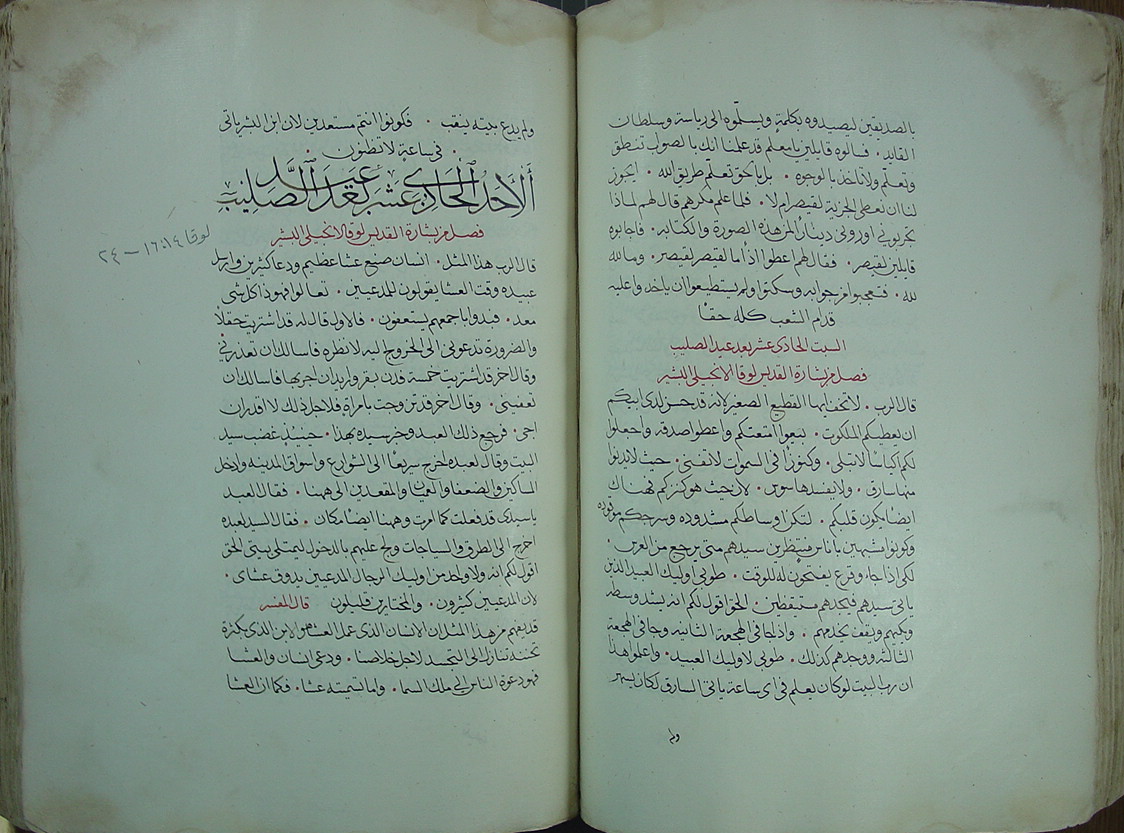 بالصديقين ليصيدوه بكلمة ويسلّموه الى رياسة وسلطان
القايد · فسالوه قايلين يا معلم قد علمنا انك بالصواب تنطق
وتعلّم ولا تاخذ بالوجوه · بل بالحق تعلّم طريق الله · ايجوز
لنا ان نعطى الجزية لقيصر ام لا · فلما علم مكرهم قال لهم لماذا
تجربوني اوروني دينارًا لمن هذه الصورة والكتابه · فاجابوه
قايلين لقيصر · فقال لهم اعطوا اذًا ما لقيصر لقيصر · وما لله
لله · فتعجبوا من جوابه وسكتوا ولم يستطيعوا ان ياخذوا عليه
قدام الشعب كلمه حقًا
السبت الحادى عشر بعد عيد الصليب
فصل من بشارة القديس لوقا الانجيلى البشير
قال الرب · لا تخف ايها القطيع الصغير لانه قد حسن لدى ابيكم
ان يعطيكم الملكوت · بيعوا امتعتكم واعطوا صدقه واجعلوا
لكم اكياسًا لا تبلى · وكنوزًا فى السموات لا تفنى · حيث لا يدنوا
منها سارق · ولا يفسدها سوس · لان حيث هو كنزكم فهناك
ايضًا يكون قلبكم · لتكن اوساطكم مشدوده وسرجكم موقوده
وكونوا مشبهين باناس منتظرين سيدهم متى يرجع من العرس ·
لكى اذا جا وقرع يفتحون له للوقت · طوبى اوليك العبيد الذين
ياتى سيدهم فيجدهم مستيقظين · الحق اقول لكم انه يشد وسطه
ويتكيهم ويقف يخدمهم · واذا جا فى الهجعة الثانيه وجا فى الهجعة
الثالثه ووجدهم كذلك · طوبى لاوليك العبيد · واعلموا هذا
ان رب البيت لو كان يعلم فى اى ساعة ياتى السارق لكان يسهر
ولم
ولم يدع بيته ينقب · فكونوا انتم مستعدين لان ابن البشر ياتى
· فى ساعة لا تظنون ·
أَلأَحَدُ الْحَادِى عَشَر بَعْدَ عِيدِ الصَّلِيبِ
فصل من بشارة القديس لوقا الانجيلى البشير
لوقا ١٤: ١٦ — ٢٤
قال الرب هذا المثل · انسان صنع عشا عظيم ودعا كثيرين وارسل
عبيده وقت العشا يقولون للمدعيين · تعالوا فهوذا كل شى
معد · فبدوا باجمعهم يستعفون · فالاول قال له قد اشتريت حقلًا
والضرورة تدعونى الى الخروج اليه لانظره فاسالك ان تعذرنى
وقال اخر قد اشتريت خمسة فدن بقر واريد ان اجربها فاسالك ان
تعفينى · وقال اخر قد تزوجت بامراة فلاجل ذلك لا اقدر ان
اجى · فرجع ذلك العبد وخبر سيده بهذا · حينيذٍ غضب سيد
البيت وقال لعبده اخرج سريعًا الى الشوارع واسواق المدينه وادخل
المساكين والضعفا والعميان والمقعدين الى ههنا · فقال العبد
يا سيدى قد فعلت كما امرت وههنا ايضًا مكان · فقال السيد لعبده
اخرج الى الطرق والسياجات ولج عليهم بالدخول ليمتلى بيتى الحق
اقول لكم انه ولا واحد من اوليك الرجال المدعيين يذوق عشاى ·
لان المدعيين كثيرون · والمختارين قليلون قال المفسر
قد يفهم من هذا المثل ان الانسان الذى عمل العشا هو الابن الذى بكثرة
تحننه تنازل الى التجسد لاجل خلاصنا · ودعى انسان والعشا
فهو دعوة الناس الى ملك السما · واما تسميته عشا · فكما ان العشا